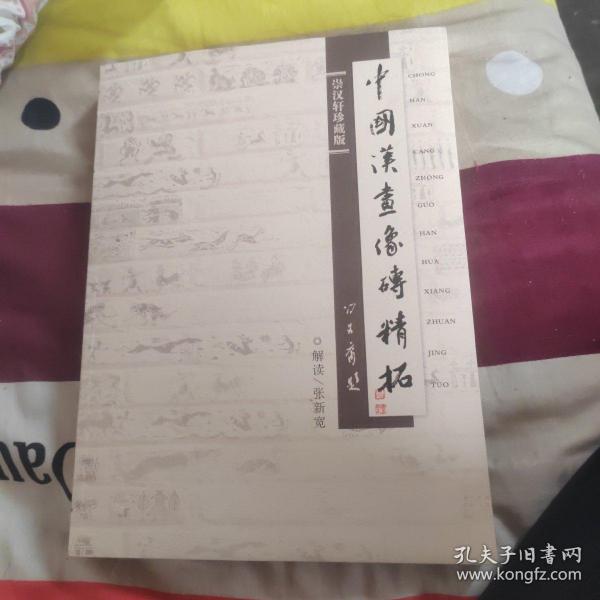 崇汉轩珍藏版
中國漢畫像磚精拓
CHONG
HAN
XUAN
CANG
ZHONG
GUO
HAN
HUA
XIANG
ZHUAN
JING
TUO
解读/张新宽
孔夫子旧书网
www.kongfz.com